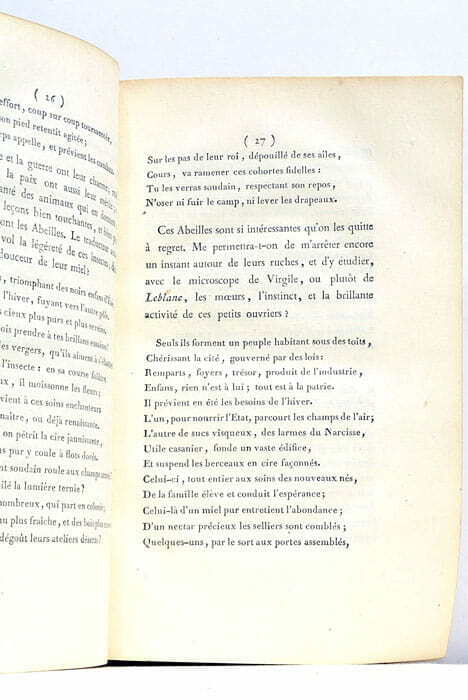 ( 26 )
effort, coup sur coup
pied retentit agitée;
appelle, et prévient les
et la guerre ont leur
la paix ont aussi leur
des animaux qui en
leçons bien touchantes, et
les Abeilles. Le traducteur
vol la légéreté de ces
douceur de leur miel?
triomphant des noirs enfans
l'hiver, fuyant vers l'autre
cieux plus purs et plus sereins
prendre à tes brillans
vergers, qu'ils aiment à
l'insecte: en sa course
il moissonne les fleurs;
à ces soins enchanteurs
ou déjà renaissante.
on pétrit la cire jaunissante,
pur y coule à flots dorés.
soudain roule aux champs
la lumière ternie?
qui part en colonie;
plus fraîche, et des bois plus
dégoût leurs ateliers déserts?
( 27 )
Sur les pas de leur roi, dépouillé de ses ailes,
Cours, va ramener ces cohortes fidelles:
Tu les verras soudain, respectant son repos,
N'oser ni fuir le camp, ni lever les drapeaux.
Ces Abeilles sont si intéressantes qu'on les quitte
à regret. Me permettra-t-on de m'arrêter encore
un instant autour de leurs ruches, et d'y étudier,
avec le microscope de Virgile, ou plutôt de
Leblanc, les mœurs, l'instinct, et la brillante
activité de ces petits ouvriers?
Seuls ils forment un peuple habitant sous des toits,
Chérissant la cité, gouverné par des lois:
Remparts, foyers, trésor, produit de l'industrie,
Enfans, rien n'est à lui; tout est à la patrie.
Il prévient en été les besoins de l'hiver.
L'un, pour nourrir l'Etat, parcourt les champs de l'air;
L'autre de sucs visqueux, des larmes du Narcisse,
Utile casanier, fonde un vaste édifice,
Et suspend les berceaux en cire façonnés.
Celui-ci, tout entier aux soins des nouveaux nés,
De la famille élève et conduit l'espérance;
Celui-là d'un miel pur entretient l'abondance;
D'un nectar précieux les selliers sont comblés;
Quelques-uns, par le sort aux portes assemblés,